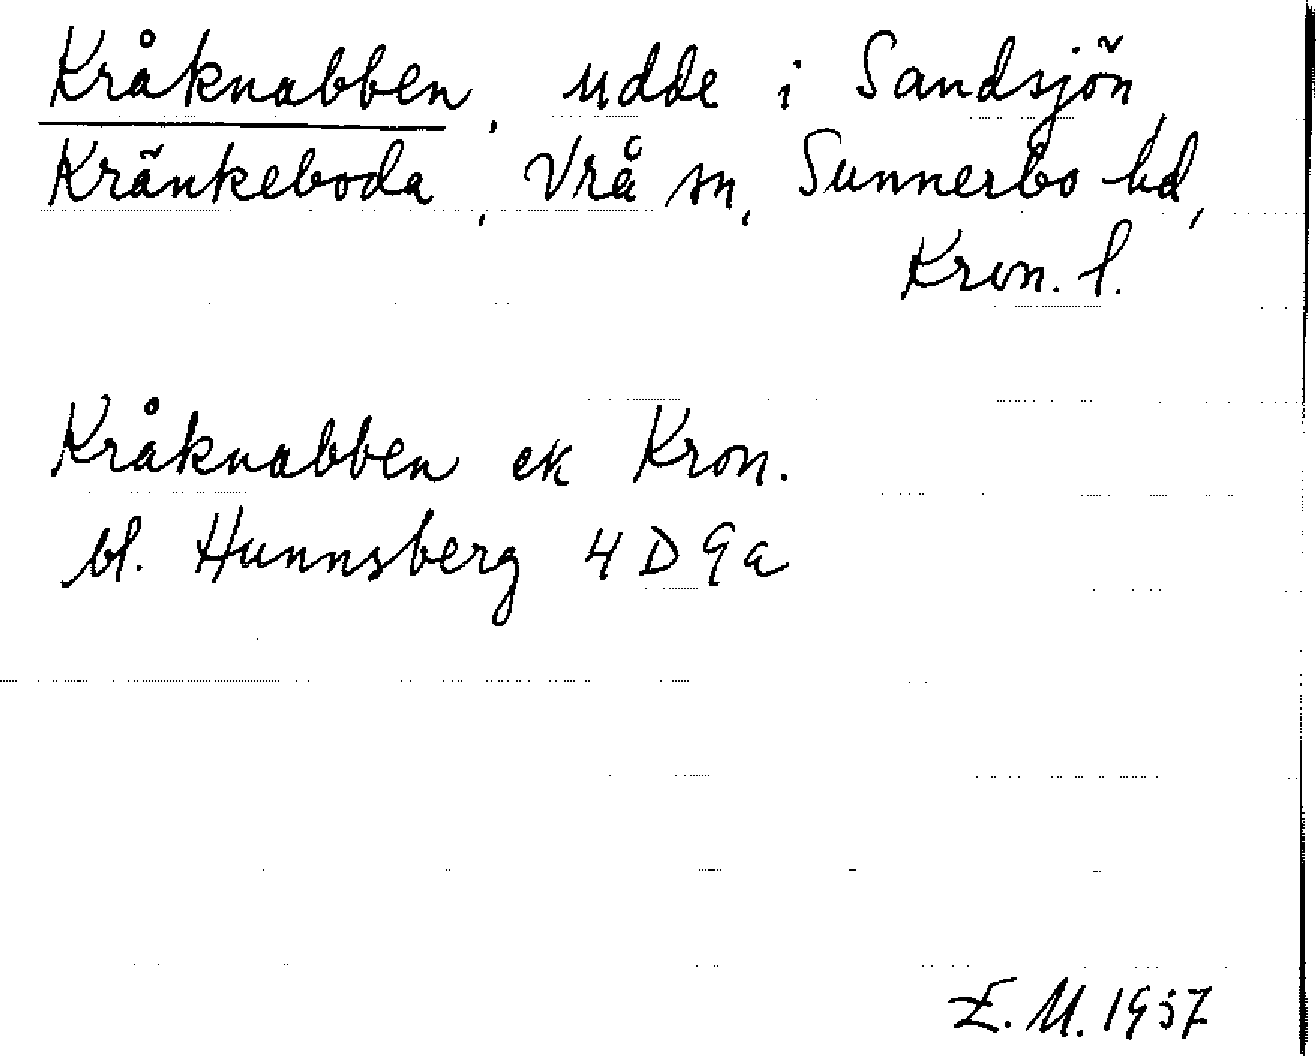 Kråknabben, udde i Sandsjön,
Kränkeboda, Vrå sn, Sunnerbo hd,
Kron. l.
Kråknabben ek Kron.
bl. Hunnsberg 4 D 9 a
E. M. 1957